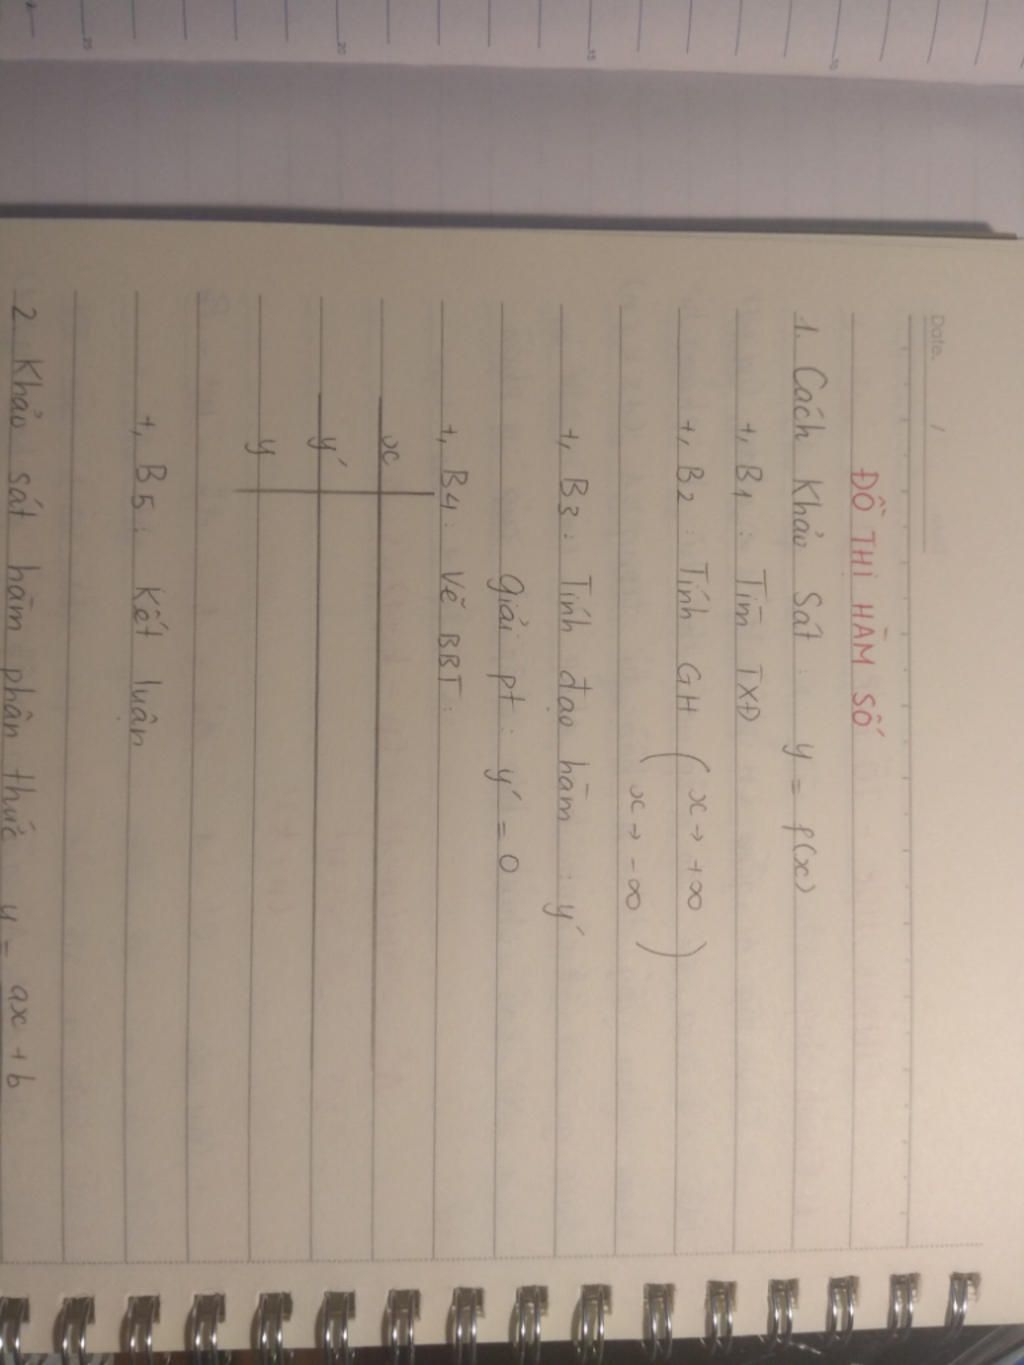 Date. /
ĐỒ THỊ HÀM SỐ
1. Cách Khảo Sát : y = f(x)
+, B1 : Tìm TXĐ
+, B2 : Tính GH ( x → +∞
x → -∞ )
+, B3 : Tính đạo hàm : y'
Giải pt : y' = 0
+, B4 : Vẽ BBT :
x
y'
y
+, B5 : Kết luận
2. Khảo sát hàm phân thức y = ax + b
25
20
15
10